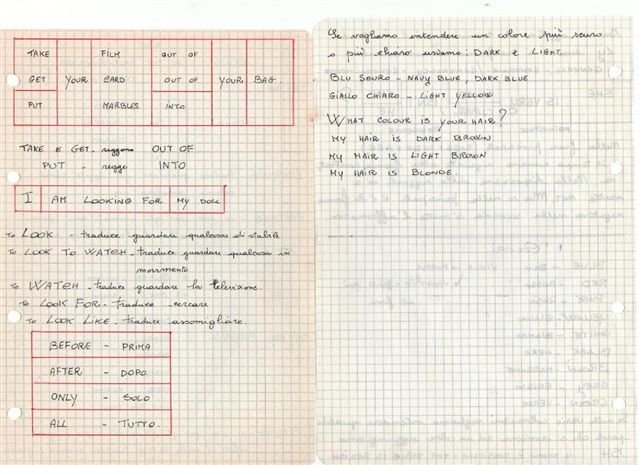 TAKE FILM OUT OF
GET YOUR CARD OUT OF YOUR BAG.
PUT MARBLES INTO
TAKE E GET - reggono OUT OF
PUT - regge INTO
I AM LOOKING FOR MY DOLL
TO LOOK - traduce guardare qualcosa di stabile
TO LOOK TO WATCH - traduce guardare qualcosa in
movimento
TO WATCH - traduce guardare la televisione.
TO LOOK FOR - traduce cercare
TO LOOK LIKE - traduce assomigliare.
BEFORE - PRIMA
AFTER - DOPO
ONLY - SOLO
ALL - TUTTO
Se vogliamo intendere un colore più scuro
o più chiaro usiamo: DARK e LIGHT.
BLU SCURO - NAVY BLUE, DARK BLUE
GIALLO CHIARO - LIGHT YELLOW
WHAT COLOUR IS YOUR HAIR?
MY HAIR IS DARK BROWN
MY HAIR IS LIGHT BROWN
MY HAIR IS BLONDE.